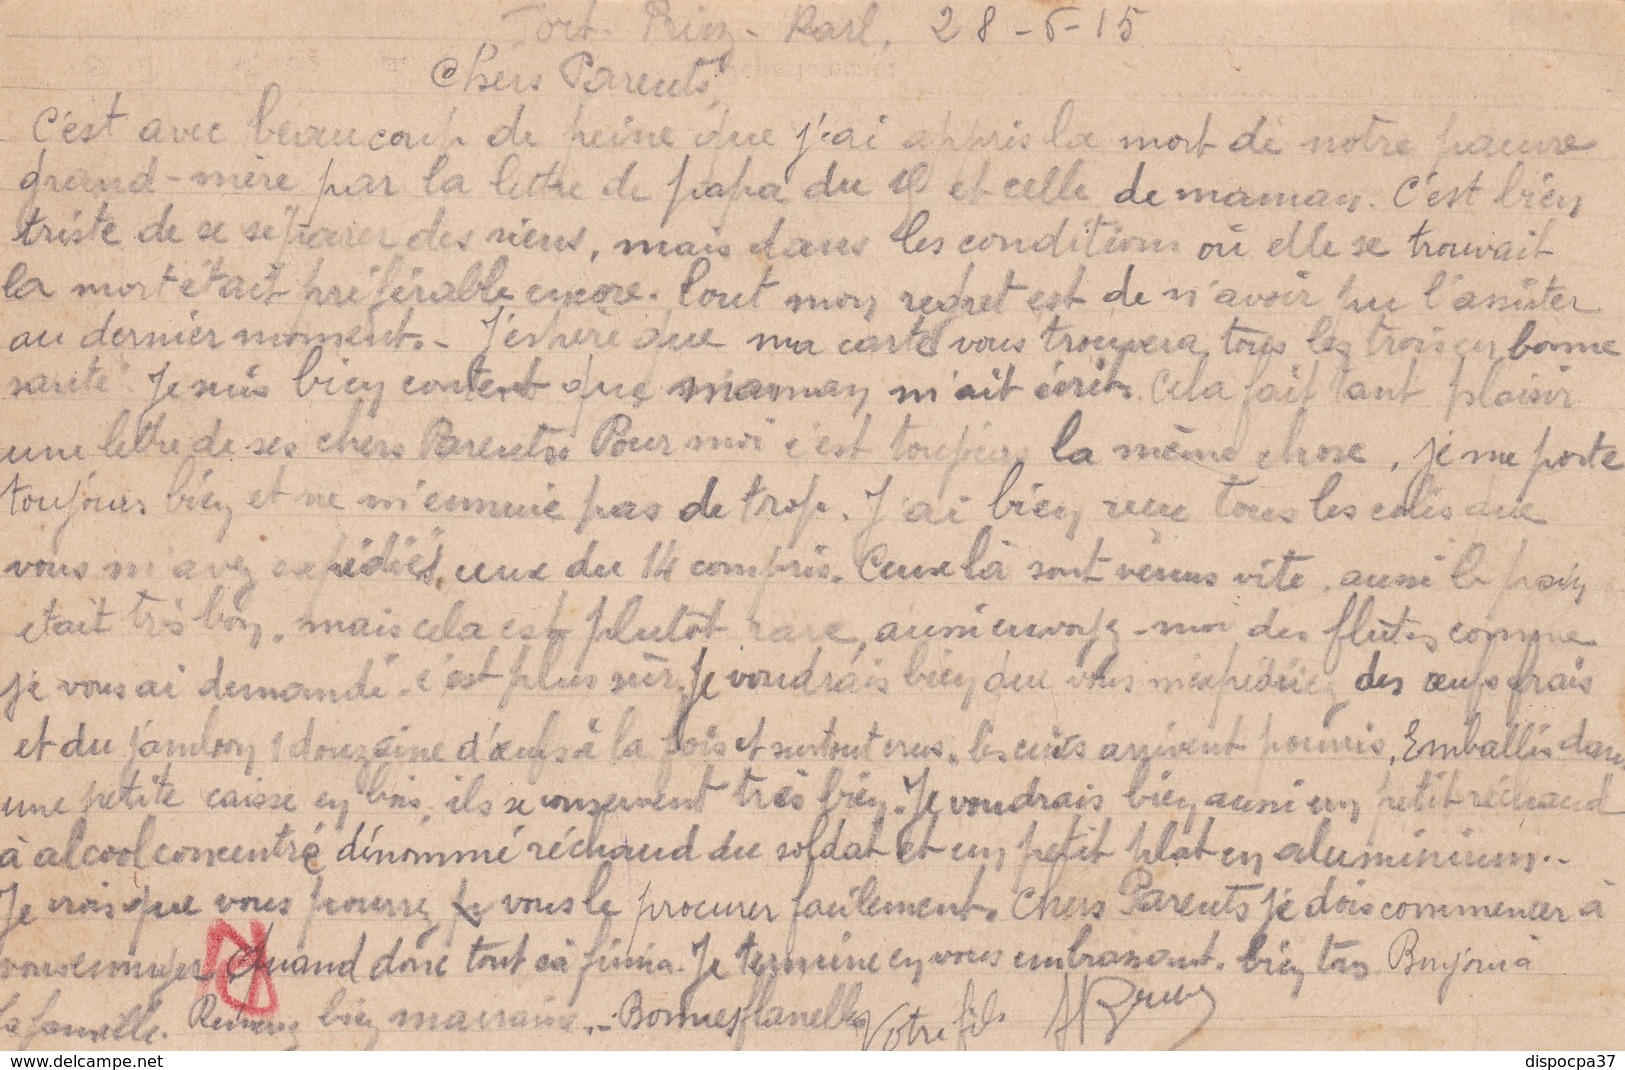 Fort Prinz-Karl, 28-6-15
Chers Parents,
C'est avec beaucoup de peine que j'ai appris la mort de notre pauvre
grand-mère par la lettre de papa du et celle de maman. C'est bien
triste de se séparer des siens, mais dans les conditions où elle se trouvait
la mort était préférable encore. Tout mon regret est de n'avoir pu l'assister
au dernier moment. - J'espère que ma carte vous trouvera tous les trois en bonne
santé. Je suis bien content que maman m'ait écrit. Cela fait tant plaisir
une lettre de ses chers Parents. Pour moi c'est toujours la même chose, je me porte
toujours bien et ne m'ennuie pas de trop. J'ai bien reçu tous les colis que
vous m'avez expédiés, ceux du 14 compris. Ceux là sont venus vite. aussi le pain
était très bon. mais cela est plutôt rare, aussi envoyez-moi des flûtes comme
je vous ai demandé. c'est plus sûr. Je voudrais bien que vous m'expédiiez des œufs frais
et du jambon 1 douzaine d'œufs à la fois et surtout crus. les cuits arrivent pourris. Emballés dans
une petite caisse en bois, ils se conservent très bien. Je voudrais bien aussi un petit réchaud
à alcool concentré dénommé réchaud du soldat et un petit plat en aluminium. -
Je crois que vous pourrez vous le procurer facilement. Chers Parents je dois commencer à
vous ennuyer. Quand donc tout ça finira. Je termine en vous embrassant. bien tous Bonjour à
la famille. Remerciez bien marraine. - Bonnes flanelles Votre fils
www.delcampe.net
dispocpa37